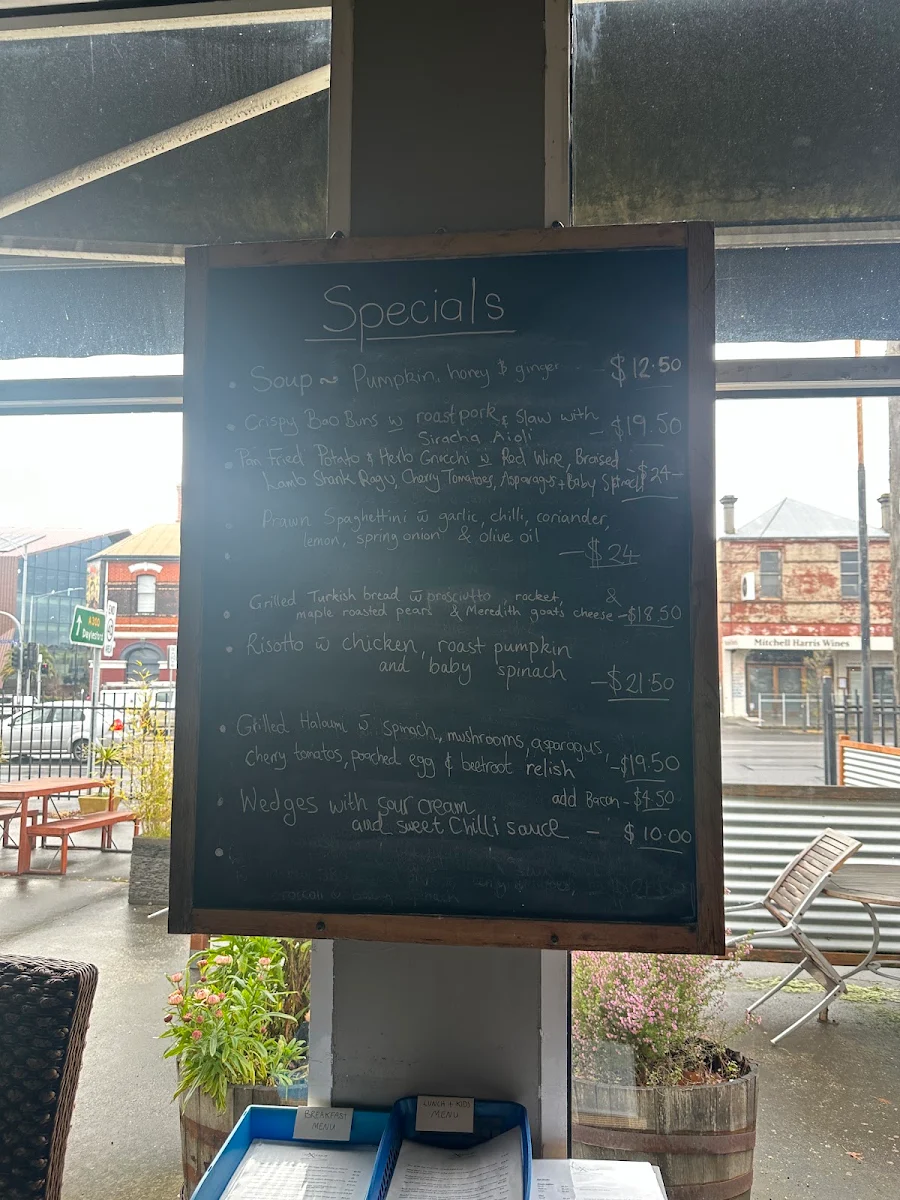 Specials
• Soup ~ Pumpkin, honey & ginger - $12.50
• Crispy Bao Buns w roast pork & Slaw with
Siracha Aioli - $19.50
• Pan Fried Potato & Herb Gnocchi w Red Wine, Braised
Lamb Shank Ragu, Cherry Tomatoes, Asparagus + Baby Spinach - $24-
• Prawn Spaghettini w garlic, chilli, coriander,
lemon, spring onion & olive oil
- $24
• Grilled Turkish bread w prosciutto, rocket, &
maple roasted pears & Meredith goats cheese - $18.50
• Risotto w chicken, roast pumpkin
and baby spinach
- $21.50
• Grilled Halumi w Spinach, mushrooms, asparagus,
cherry tomatos, poached egg & beetroot relish - $19.50
add Bacon - $4.50
• Wedges with sour cream
and sweet Chilli sauce - $10.00
A300
Daylesford
Mitchell Harris Wines
BREAKFAST
MENU
LUNCH + KIDS
MENU